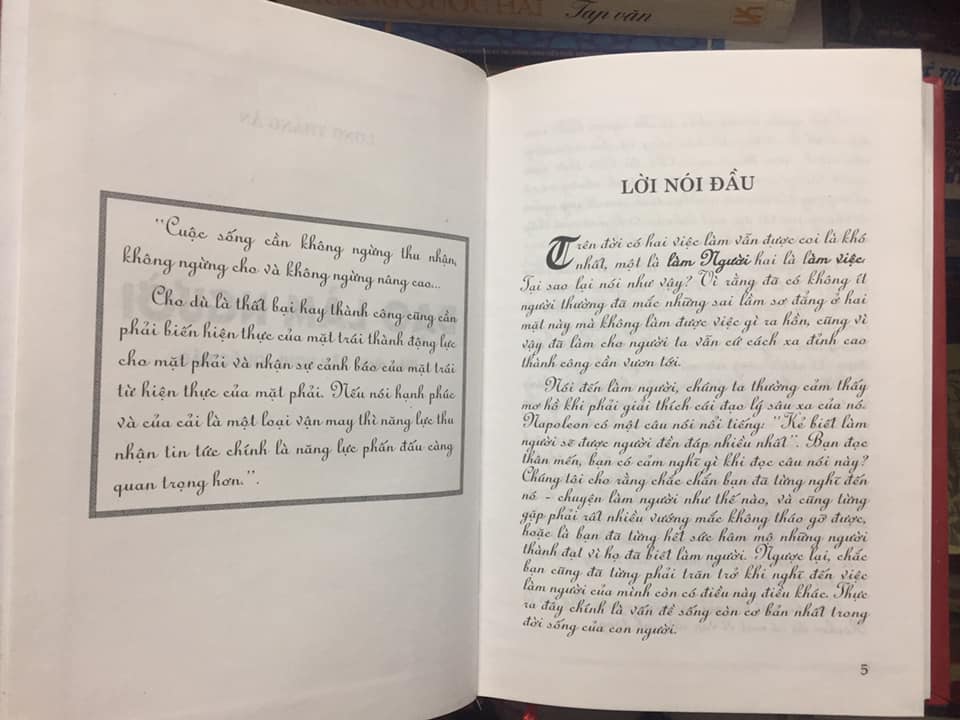 Tạp văn
"Cuộc sống cần không ngừng thu nhận,
không ngừng cho và không ngừng nâng cao...
Cho dù là thất bại hay thành công cũng cần
phải biến hiện thực của mặt trái thành động lực
cho mặt phải và nhận sự cảnh báo của mặt trái
từ hiện thực của mặt phải. Nếu nói hạnh phúc
và của cải là một loại vận may thì năng lực thu
nhận tin tức chính là năng lực phấn đấu càng
quan trọng hơn.".
LỜI NÓI ĐẦU
Trên đời có hai việc làm vẫn được coi là khó
nhất, một là làm Người hai là làm việc.
Tại sao lại nói như vậy? Vì rằng đã có không ít
người thường đã mắc những sai lầm sơ đẳng ở hai
mặt này mà không làm được việc gì ra hồn, cũng vì
vậy đã làm cho người ta vẫn cứ cách xa đỉnh cao
thành công cần vươn tới.
Nói đến làm người, chúng ta thường cảm thấy
mơ hồ khi phải giải thích cái đạo lý sâu xa của nó.
Napoleon có một câu nói nổi tiếng: "Kẻ biết làm
người sẽ được người đền đáp nhiều nhất". Bạn đọc
thân mến, bạn có cảm nghĩ gì khi đọc câu nói này?
Chúng tôi cho rằng chắc chắn bạn đã từng nghĩ đến
nó - chuyện làm người như thế nào, và cũng từng
gặp phải rất nhiều vướng mắc không tháo gỡ được,
hoặc là bạn đã từng hết sức hâm mộ những người
thành đạt vì họ đã biết làm người. Ngược lại, chắc
bạn cũng đã từng phải trăn trở khi nghĩ đến việc
làm người của mình còn có điều này điều khác. Thực
ra đây chính là vấn đề sống còn cơ bản nhất trong
đời sống của con người.
5